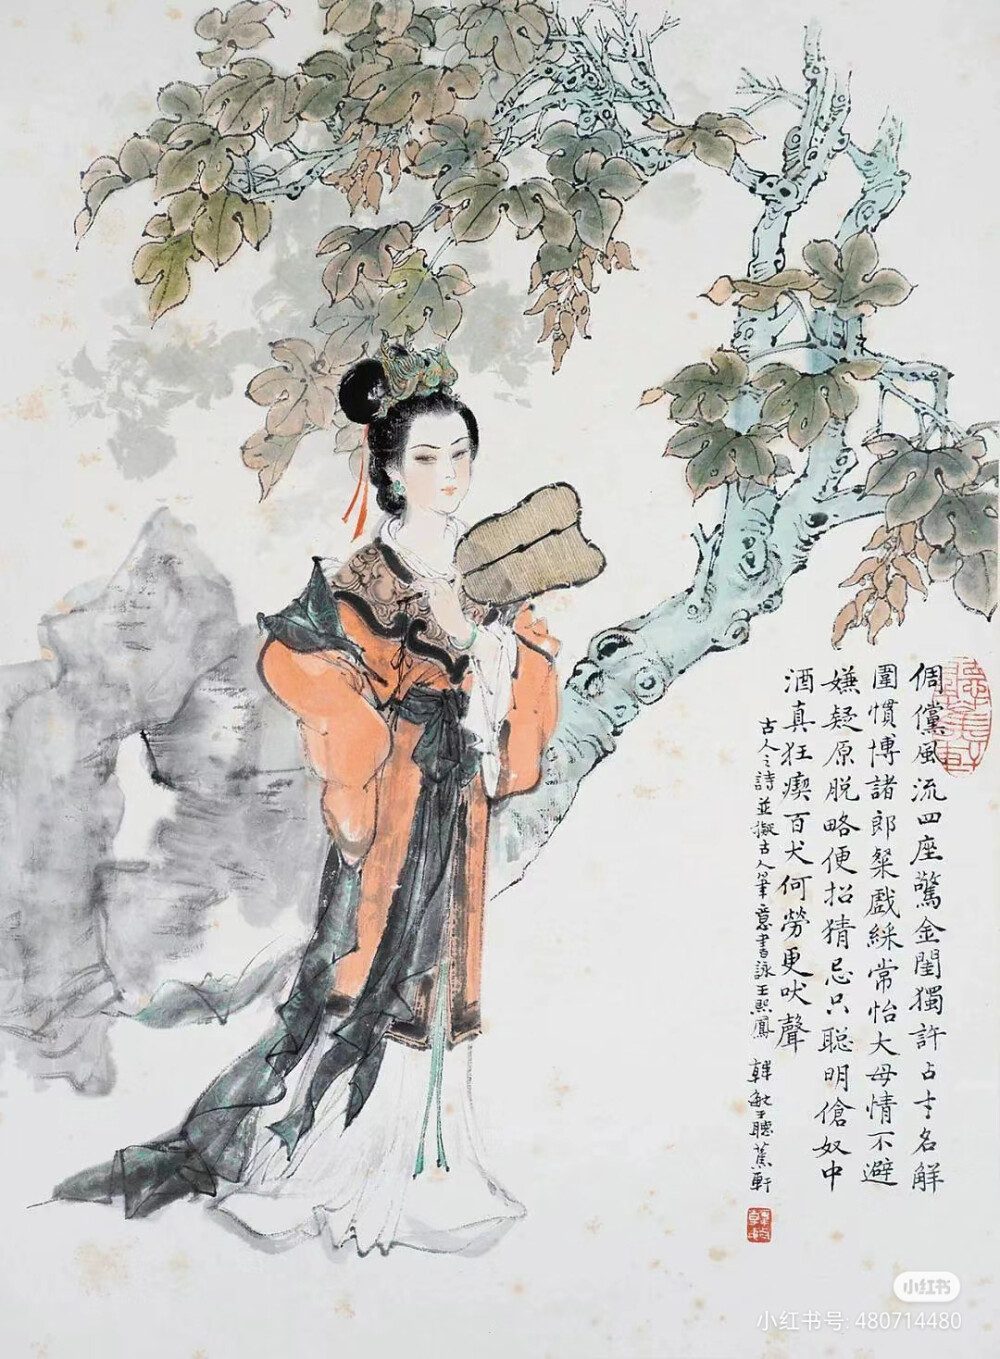 倜儻風流四座驚金閨獨許占才名解
圍慣博諸郎粲戲綵常怡大母情不避
嫌疑原脫略便招猜忌只聰明傖奴中
酒真狂瘈百犬何勞更吠聲
古人之詩並擬古人筆意書詠王熙鳳 韓敏于聽蕉軒
小红书
小红书号: 480714480